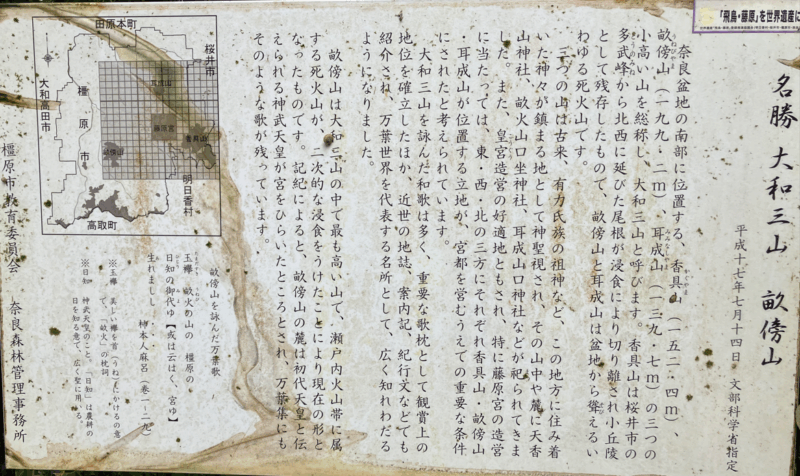 「飛鳥・藤原」を世界遺産に
名勝 大和三山 畝傍山
平成十七年七月十四日 文部科学省指定
奈良盆地の南部に位置する、香具山（一五二・四m）、
畝傍山（一九九・二m）、耳成山（一三九・七m）の三つの
小高い山を総称し、大和三山と呼びます。香具山は桜井市の
多武峰から北西に延びた尾根が浸食により切り離され小丘陵
として残存したもので、畝傍山と耳成山は盆地から聳えるい
わゆる死火山です。
三つの山は古来、有力氏族の祖神など、この地方に住み着
いた神々が鎮まる地として神聖視され、その山中や麓に天香
山神社、畝火山口坐神社、耳成山口神社などが祀られてきま
した。また、皇宮造営の好適地ともされ、特に藤原宮の造営
に当たっては、東・西・北の三方にそれぞれ香具山・畝傍山
・耳成山が位置する立地が、宮都を営むうえでの重要な条件
にされたと考えられています。
大和三山を詠んだ和歌は多く、重要な歌枕として観賞上の
地位を確立したほか、近世の地誌、案内記、紀行文などでも
紹介され、万葉世界を代表する名所として、広く知れわたる
ようになりました。
畝傍山は大和三山の中で最も高い山で、瀬戸内火山帯に属
する死火山が、二次的な浸食をうけたことにより現在の形と
なったものです。記紀によると、畝傍山の麓は初代天皇と伝
えられる神武天皇が宮をひらいたところとされ、万葉集にも
そのような歌が残っています。
畝傍山を詠んだ万葉歌
玉襷 畝火の山の 橿原の
日知の御代ゆ【或は云はく、宮ゆ】
生れましし
柿本人麻呂（巻一－二九）
※玉襷 美しい襷を首（うね）にかけるの意
で、「畝火」の枕詞
※日知 神武天皇のこと、「日知」は農耕の
日を知る意で、広く聖に用いる
橿原市教育委員会 奈良森林管理事務所
田原本町
桜井市
橿原市
大和高田市
耳成山
藤原宮
香具山
畝傍山
明日香村
高取町